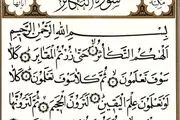 سُورَةُ التَّكَاثُرِ
بِسْمِ اللَّهِ الرَّحْمَٰنِ الرَّحِيمِ
أَلْهَىٰكُمُ التَّكَاثُرُ حَتَّىٰ زُرْتُمُ الْمَقَابِرَ كَلَّا
سَوْفَ تَعْلَمُونَ ثُمَّ كَلَّا سَوْفَ تَعْلَمُونَ كَلَّا
لَوْ تَعْلَمُونَ عِلْمَ الْيَقِينِ لَتَرَوُنَّ الْجَحِيمَ ثُمَّ لَتَرَوُنَّهَا